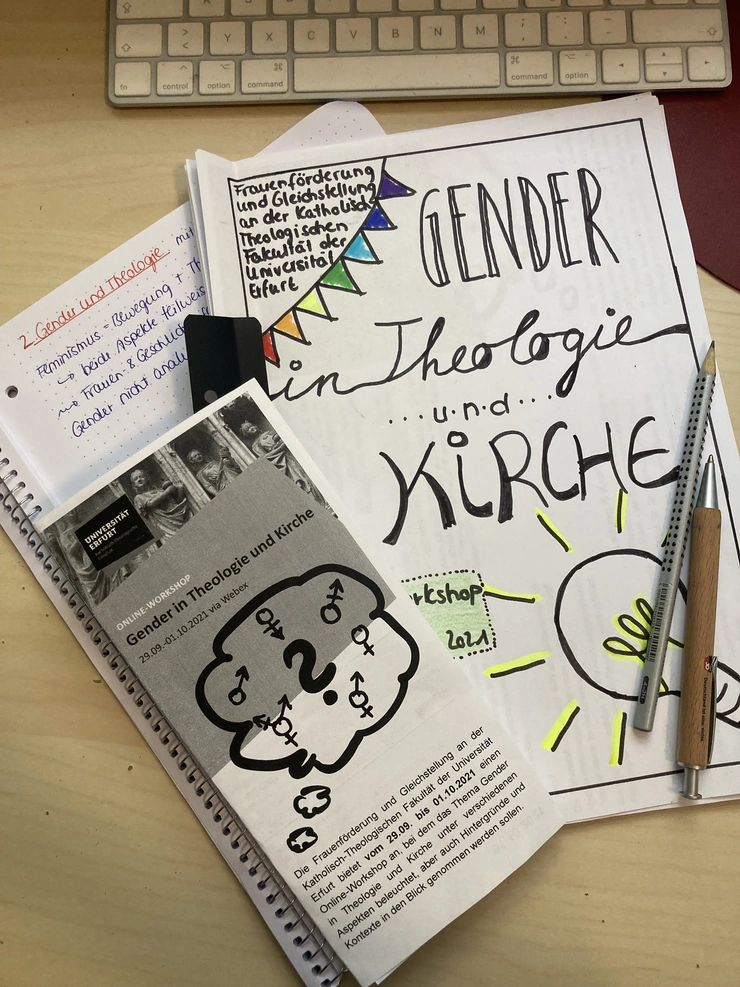 Y X C V B N M
fn control option command command option
Frauenförderung
und Gleichstellung
an der Katholisch
Theologischen
Fakultät der
Universität
Erfurt
GENDER
in Theologie
...u.n.d...
KiRCHE
rkshop
2021
2. Gender und Theologie mit
Feminismus = Bewegung + Th
↳ beide Aspekte teilweis
Frauen- & Geschlech
Gender nicht
UNIVERSITÄT
ERFURT
ONLINE-WORKSHOP
Gender in Theologie und Kirche
29.09.-01.10.2021 via Webex
?
Die Frauenförderung und Gleichstellung an der
Katholisch-Theologischen Fakultät der Universität
Erfurt bietet vom 29.09. bis 01.10.2021 einen
Online-Workshop an, bei dem das Thema Gender
in Theologie und Kirche unter verschiedenen
Aspekten beleuchtet, aber auch Hintergründe und
Kontexte in den Blick genommen werden sollen.